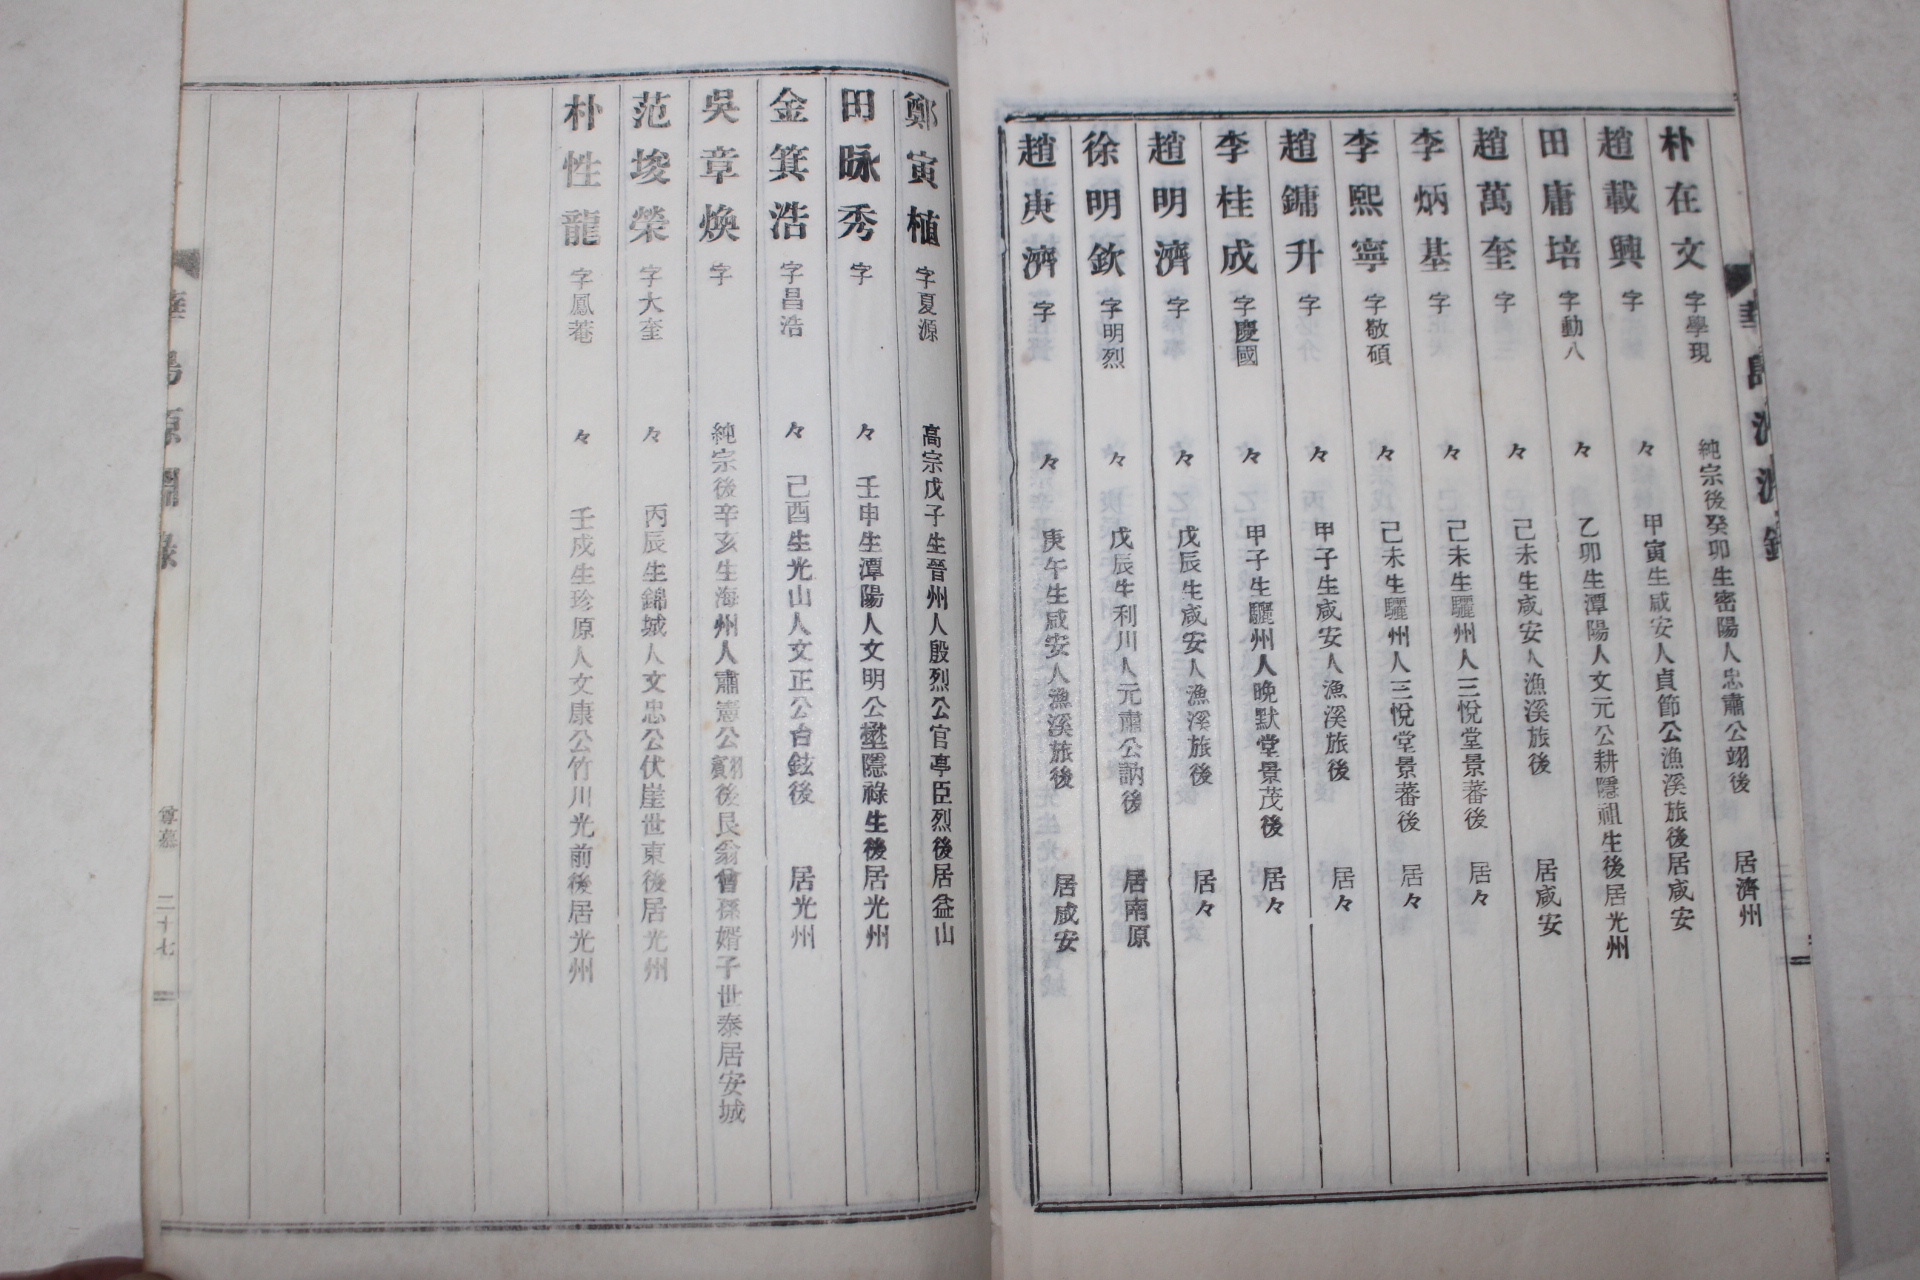 朴在文 字學現 純宗後癸卯生密陽人忠肅公翊後 居濟州
趙載興 字 々 甲寅生咸安人貞節公漁溪旅後居咸安
田庸培 字動八 々 乙卯生潭陽人文元公耕隱祖生後居光州
趙萬奎 字 々 己未生咸安人漁溪旅後 居咸安
李炳基 字 々 己未生驪州人三悅堂景蕃後 居々
李熙寧 字敬碩 々 己未生驪州人三悅堂景蕃後 居々
趙鏞升 字 々 甲子生咸安人漁溪旅後 居々
李桂成 字慶國 々 甲子生驪州人晚默堂景茂後 居々
趙明濟 字 々 戊辰生咸安人漁溪旅後 居々
徐明欽 字明烈 々 戊辰生利川人元肅公訥後 居南原
趙庚濟 字 々 庚午生咸安人漁溪旅後 居咸安
鄭寅植 字夏源 高宗戊子生晉州人殷烈公官亭臣烈後居益山
田眿秀 字 々 壬申生潭陽人文明公壄隱祿生後居光州
金箕浩 字昌浩 々 己酉生光山人文正公台鉉後 居光州
吳章煥 字 純宗後辛亥生海州人肅憲公翻後艮翁曾孫婿子世泰居安城
范埈榮 字大奎 々 丙辰生錦城人文忠公伏崖世東後居光州
朴性龍 字鳳菴 々 壬戌生珍原人文康公竹川光前後居光州
尊慕 二十七